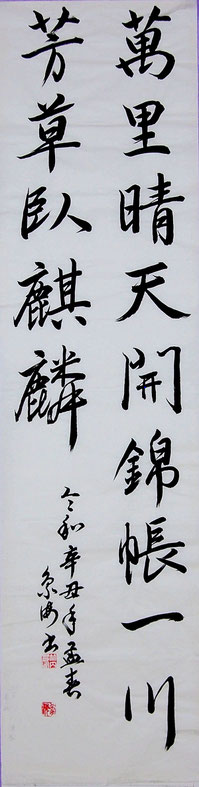 萬里晴天開錦帳一川
芳草臥麒麟
令和辛丑年孟春
書